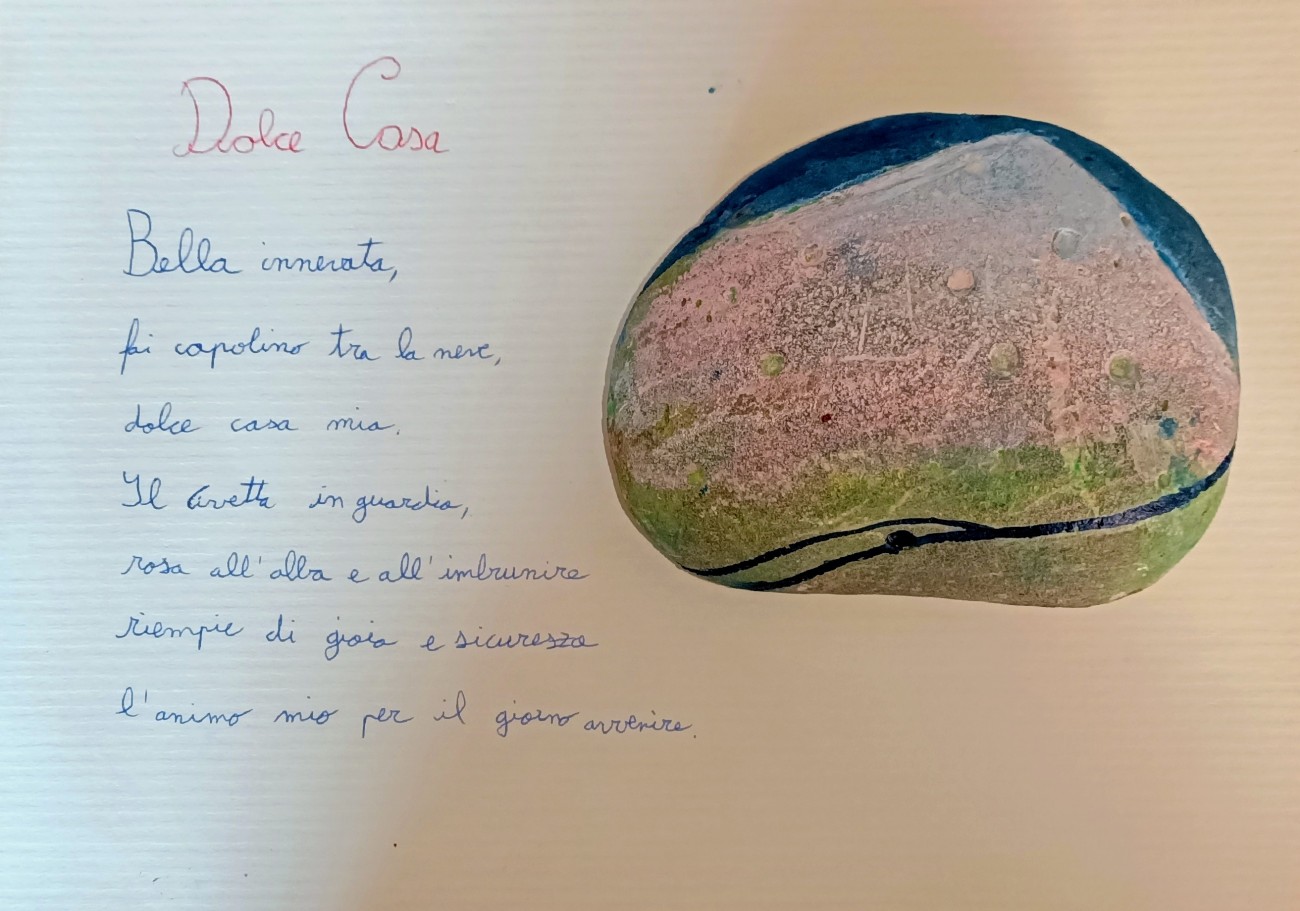 Dolce Casa
Bella innevata,
fai capolino tra la neve,
dolce casa mia.
Il Civetta in guardia,
rosa all'alba e all'imbrunire
riempie di gioia e sicurezza
l'animo mio per il giorno avvenire.